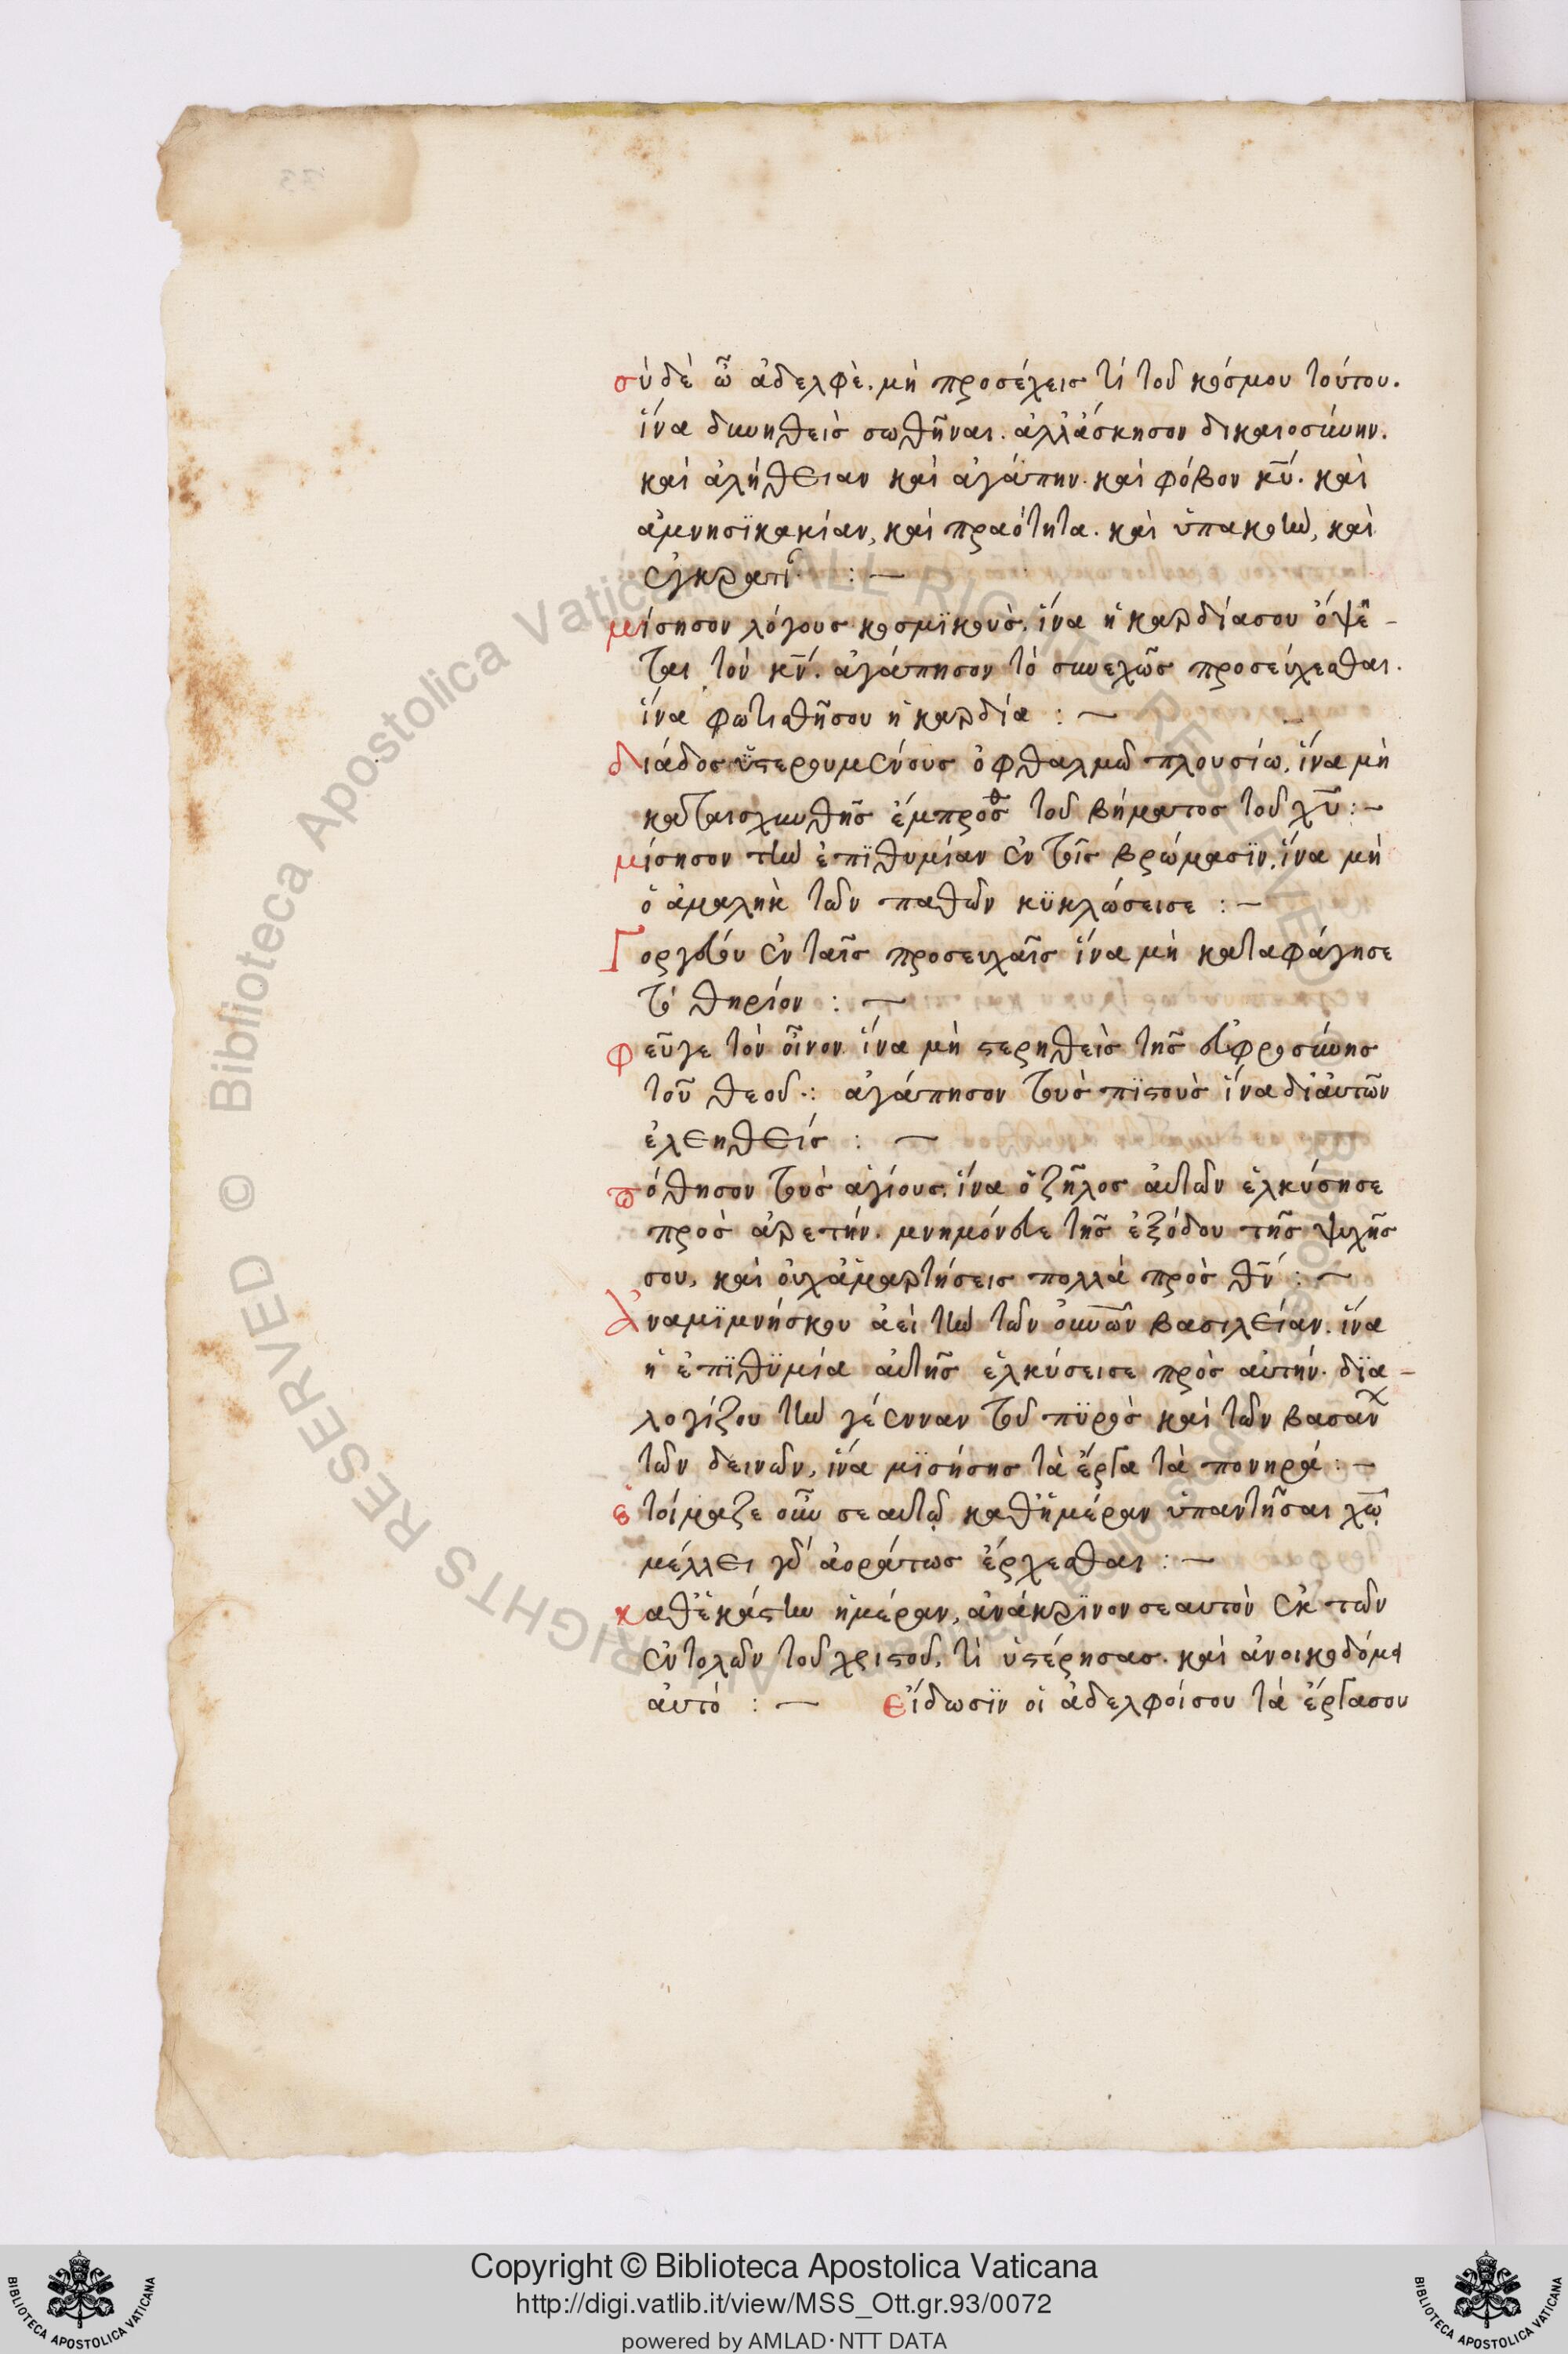 σὺ δὲ ὦ ἀδελφὲ. μὴ προσέχεις τί τοῦ κόσμου τούτου.
ἵνα δυνηθεὶς σωθῆναι. ἀλλἄσκησον δικαιοσύνην.
καὶ ἀλήθειαν καὶ ἀγάπην. καὶ φόβον κ̅υ̅. καὶ
ἀμνησϊκακίαν, καὶ πραότητα. καὶ ὑπακοὴν, καὶ
ἐγκρατί : —
μίσησον λόγους κοσμϊκοὺς. ἵνα ἡ καρδίασου ὄψε-
ται τὸν κ̅ν̅. ἀγάπησον τὸ συνεχῶς προσεύχεσθαι.
ἵνα φωτισθῆσου ἡ καρδία : —
διάδος ὑστερουμένους ὀφθαλμῶ πλουσίω, ἵνα μὴ
καταισχυνθῆς ἔμπροσθ τοῦ βήματος τοῦ χ̅υ̅ : —
μίσησον τὴν ἐπϊθυμίαν ἐν τοῖς βρώμασϊν, ἵνα μὴ
ὁ ἀμαλὴκ τῶν παθῶν κϋκλώσεισε : —
Γοργεύου ἐν ταῖς προσευχαῖς ἵνα μὴ καταφάγησε
τὸ θηρίον : —
φεῦγε τὸν οἶνον ἵνα μὴ στερηθεὶς τῆς εὐφροσύνης
τοῦ θεοῦ .: ἀγάπησον τοὺς πϊστοὺς ἵνα διἀυτῶν
ἐλεηθείς : —
πόθησον τοὺς ἁγίους. ἵνα ὁ ζῆλος ἀυτῶν ἑλκύσησε
πρὸς ἀρετήν. μνημόνευε τῆς ἐξόδου τῆς ψυχῆς
σου, καὶ οὐχἁμαρτήσεις πολλὰ πρὸς θ̅ν̅ : —
ἀναμϊμνήσκου ἀεὶ τὴν τῶν ὀυνῶν βασιλείαν. ἵνα
ἡ ἐπϊθϋμία ἀυτῆς ἑλκύσεισε πρὸς αὐτήν. δϊα-
λογίζου τὴν γέενναν τοῦ πϋρὸς καὶ τῶν βασαν
τῶν δεινῶν, ἵνα μϊσήσης τὰ ἔργα τὰ πονηρά : —
ἑτοίμαζε οὖν σεαυτῷ καθἡμέραν ὑπαντῆσαι χ̅ῳ̅
μέλλει γὰρ ἀοράτως ἔρχεσθαι : —
καθἑκάστην ἡμέραν, ἀνάκρϊνον σεαυτὸν ἐκ τῶν
ἐντολῶν τοῦ χριστοῦ, τὶ ὑστέρησας. καὶ ἀνοικοδόμα
ἀυτό : — εἴδωσϊν οἱ ἀδελφοίσου τὰ ἔργασου
Copyright © Biblioteca Apostolica Vaticana
http://digi.vatlib.it/view/MSS_Ott.gr.93/0072
powered by AMLAD·NTT DATA
BIBLIOTECA APOSTOLICA VATICANA
BIBLIOTECA APOSTOLICA VATICANA
© Biblioteca Apostolica Vaticana ALL RIGHTS RESERVED